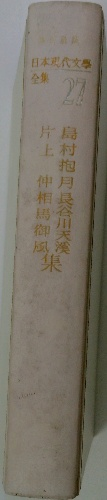 日本現代文學
全集
27
島村抱月長谷川天溪
片上伸相馬御風
集